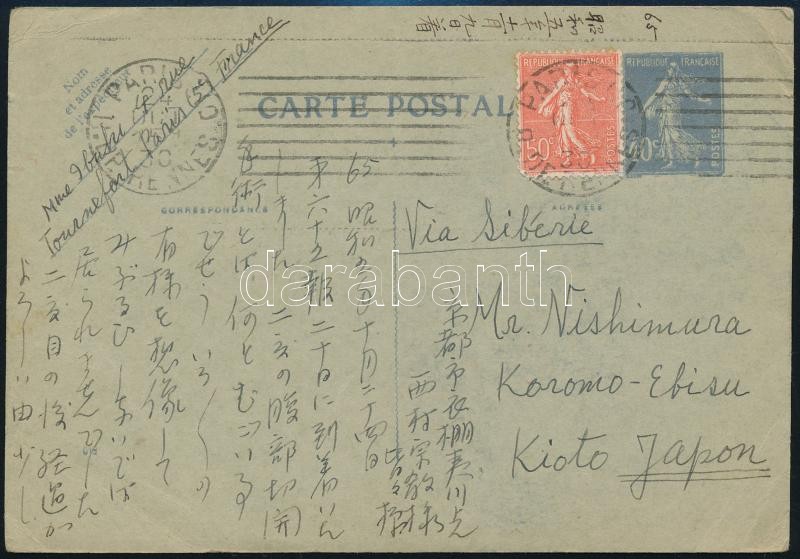 65
昭和五年十一月九日着
Nom
et adresse
de l'expéditeur
Mme Ibuski 4 rue
Tournefort Paris (5e) France
CARTE POSTALE
RÉPUBLIQUE FRANÇAISE
50c
POSTES
RÉPUBLIQUE FRANÇAISE
40c
POSTES
PARIS
CORRESPONDANCE
ADRESSE
Via Sibérie
Mr. Nishimura
Koromo-Ebisu
Kioto Japon
京都市衣棚夷川上
西村宗
皆々様
65 昭和五年十月二十四日
第六十五報二十日に到着いた
しました 二度の腹部切開
手術とは何とむごい
でせう いろ〱の
有様を想像して
みぶるひしないでは
居られませんでした
二度目の後経過が
よろしい由 少し
darabanth